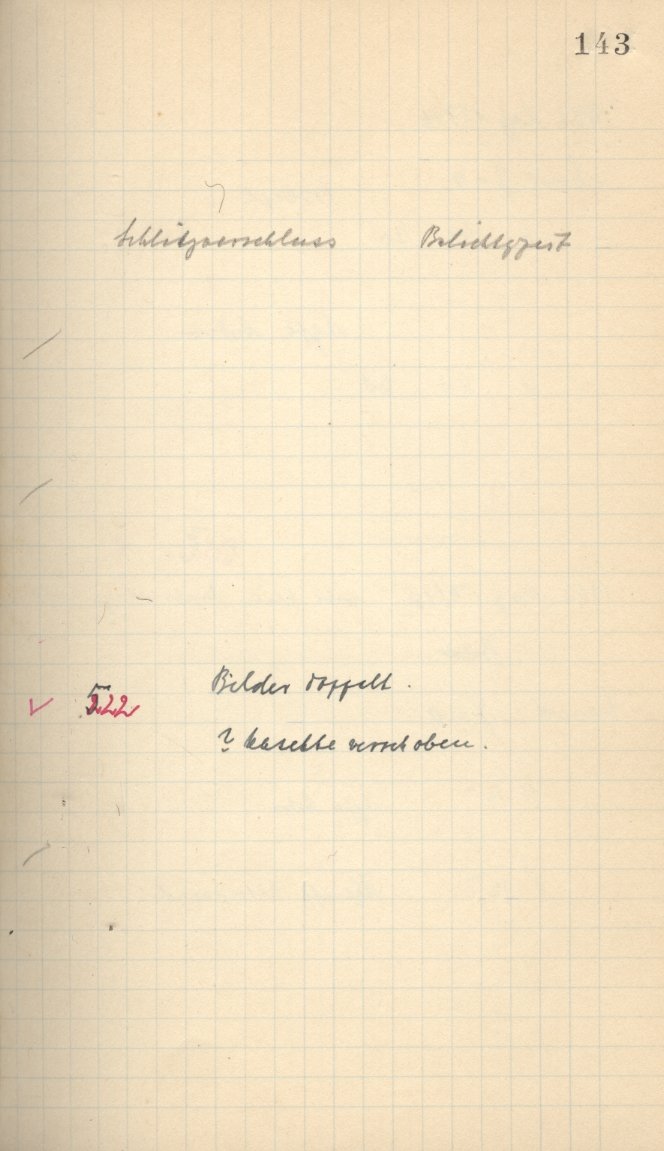 143
Schlitzverschluss Belichtgszeit
Bilder doppelt.
5.22
? kasette verschoben.